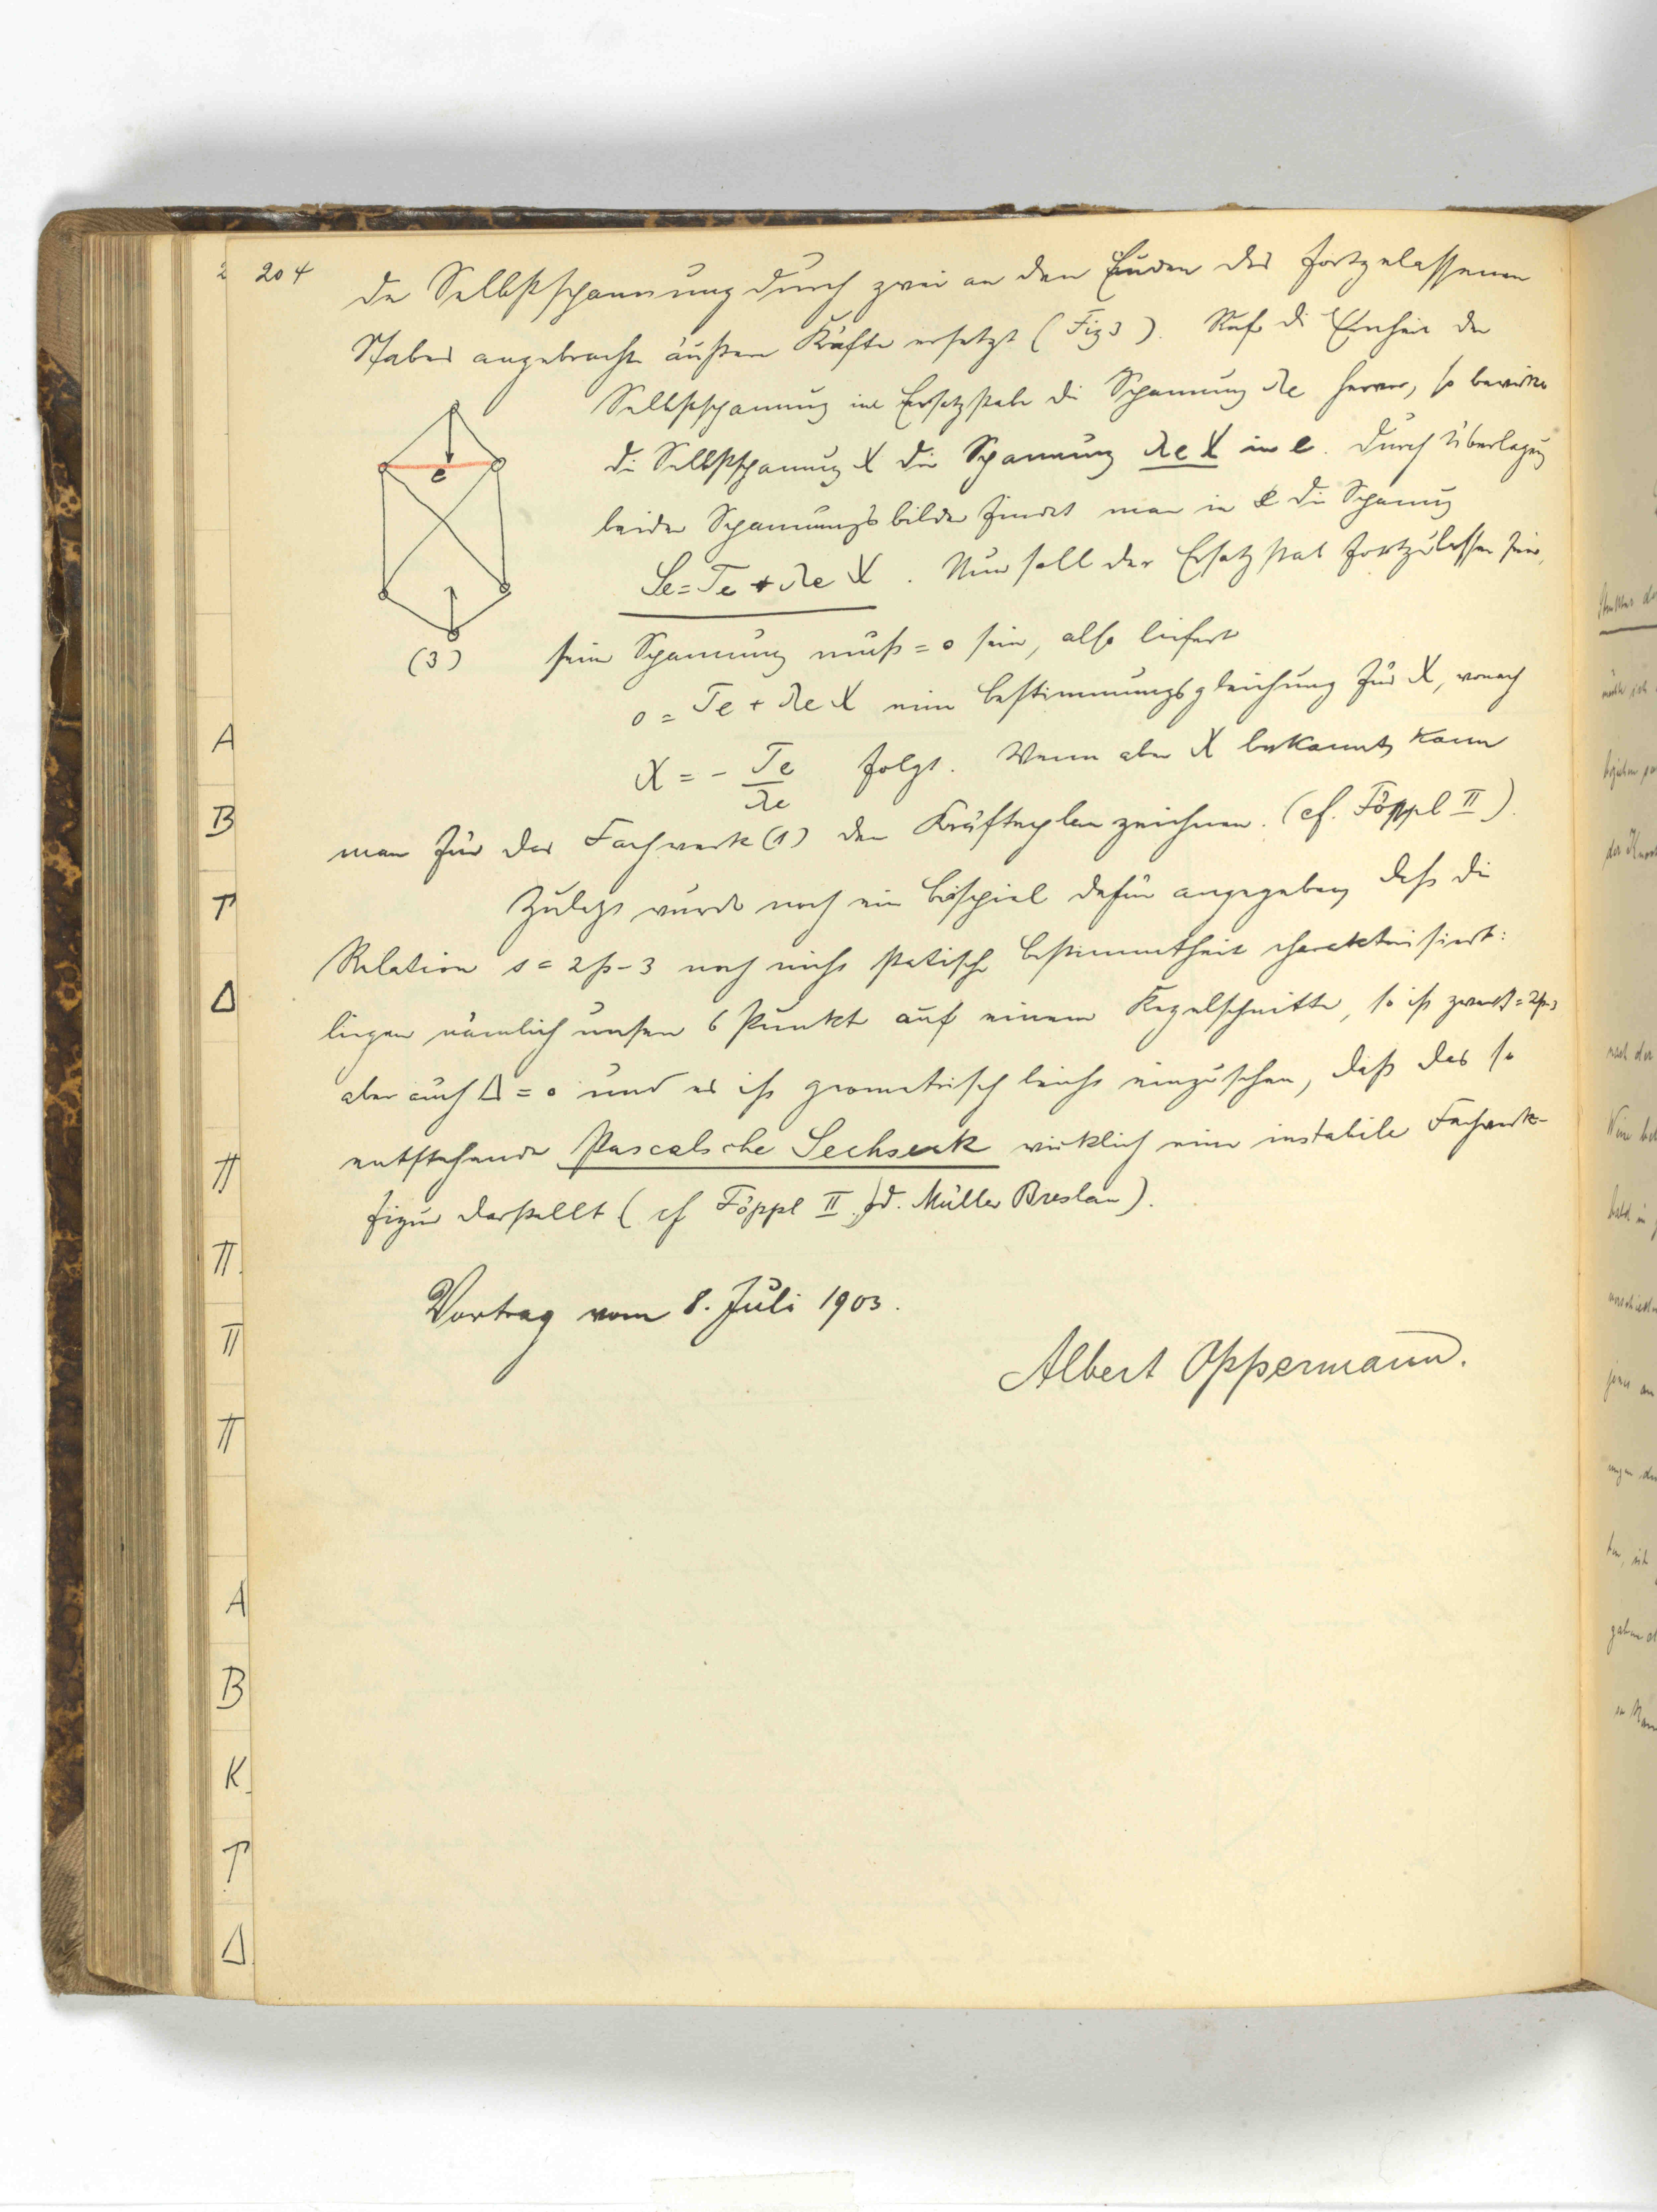 204
die Selbstspannung durch zwei an den Enden des fortgelassenen
Stabes angebrachte äußere Kräfte ersetzt (Fig 3). Ruft die Einheit der
Selbstspannung im Ersatzstabe die Spannung λe hervor, so bewirkt
die Selbstspannung X die Spannung λe X in e. Durch Überlagerung
beider Spannungsbilder findet man in e die Spannung
Se = Te + λe X. Nun soll der Ersatzstab fortzulassen sein,
e
(3)
seine Spannung muß = 0 sein, also liefert
0 = Te + λe X eine Bestimmungsgleichung für X, wonach
X = - Te/λe folgt. Wenn aber X bekannt, kann
man für das Fachwerk (1) den Kräfteplan zeichnen. (cf. Föppl II).
Zuletzt wurde noch ein Beispiel dafür angegeben, daß die
Relation s = 2p-3 noch nicht statische Bestimmtheit charakterisiert:
liegen nämlich unsere 6 Punkte auf einem Kegelschnitte, so ist zwar s = 2p-3
aber auch Δ = 0 und es ist geometrisch leicht einzusehen, daß das so
entstehende Pascalsche Sechseck wirklich eine instabile Fachwerk-
figur darstellt (cf Föppl II, Müller Breslau).
Vortrag vom 8. Juli 1903.
Albert Oppermann.
A
B
T
Δ
Π
Π
Π
Π
A
B
K
T
Δ